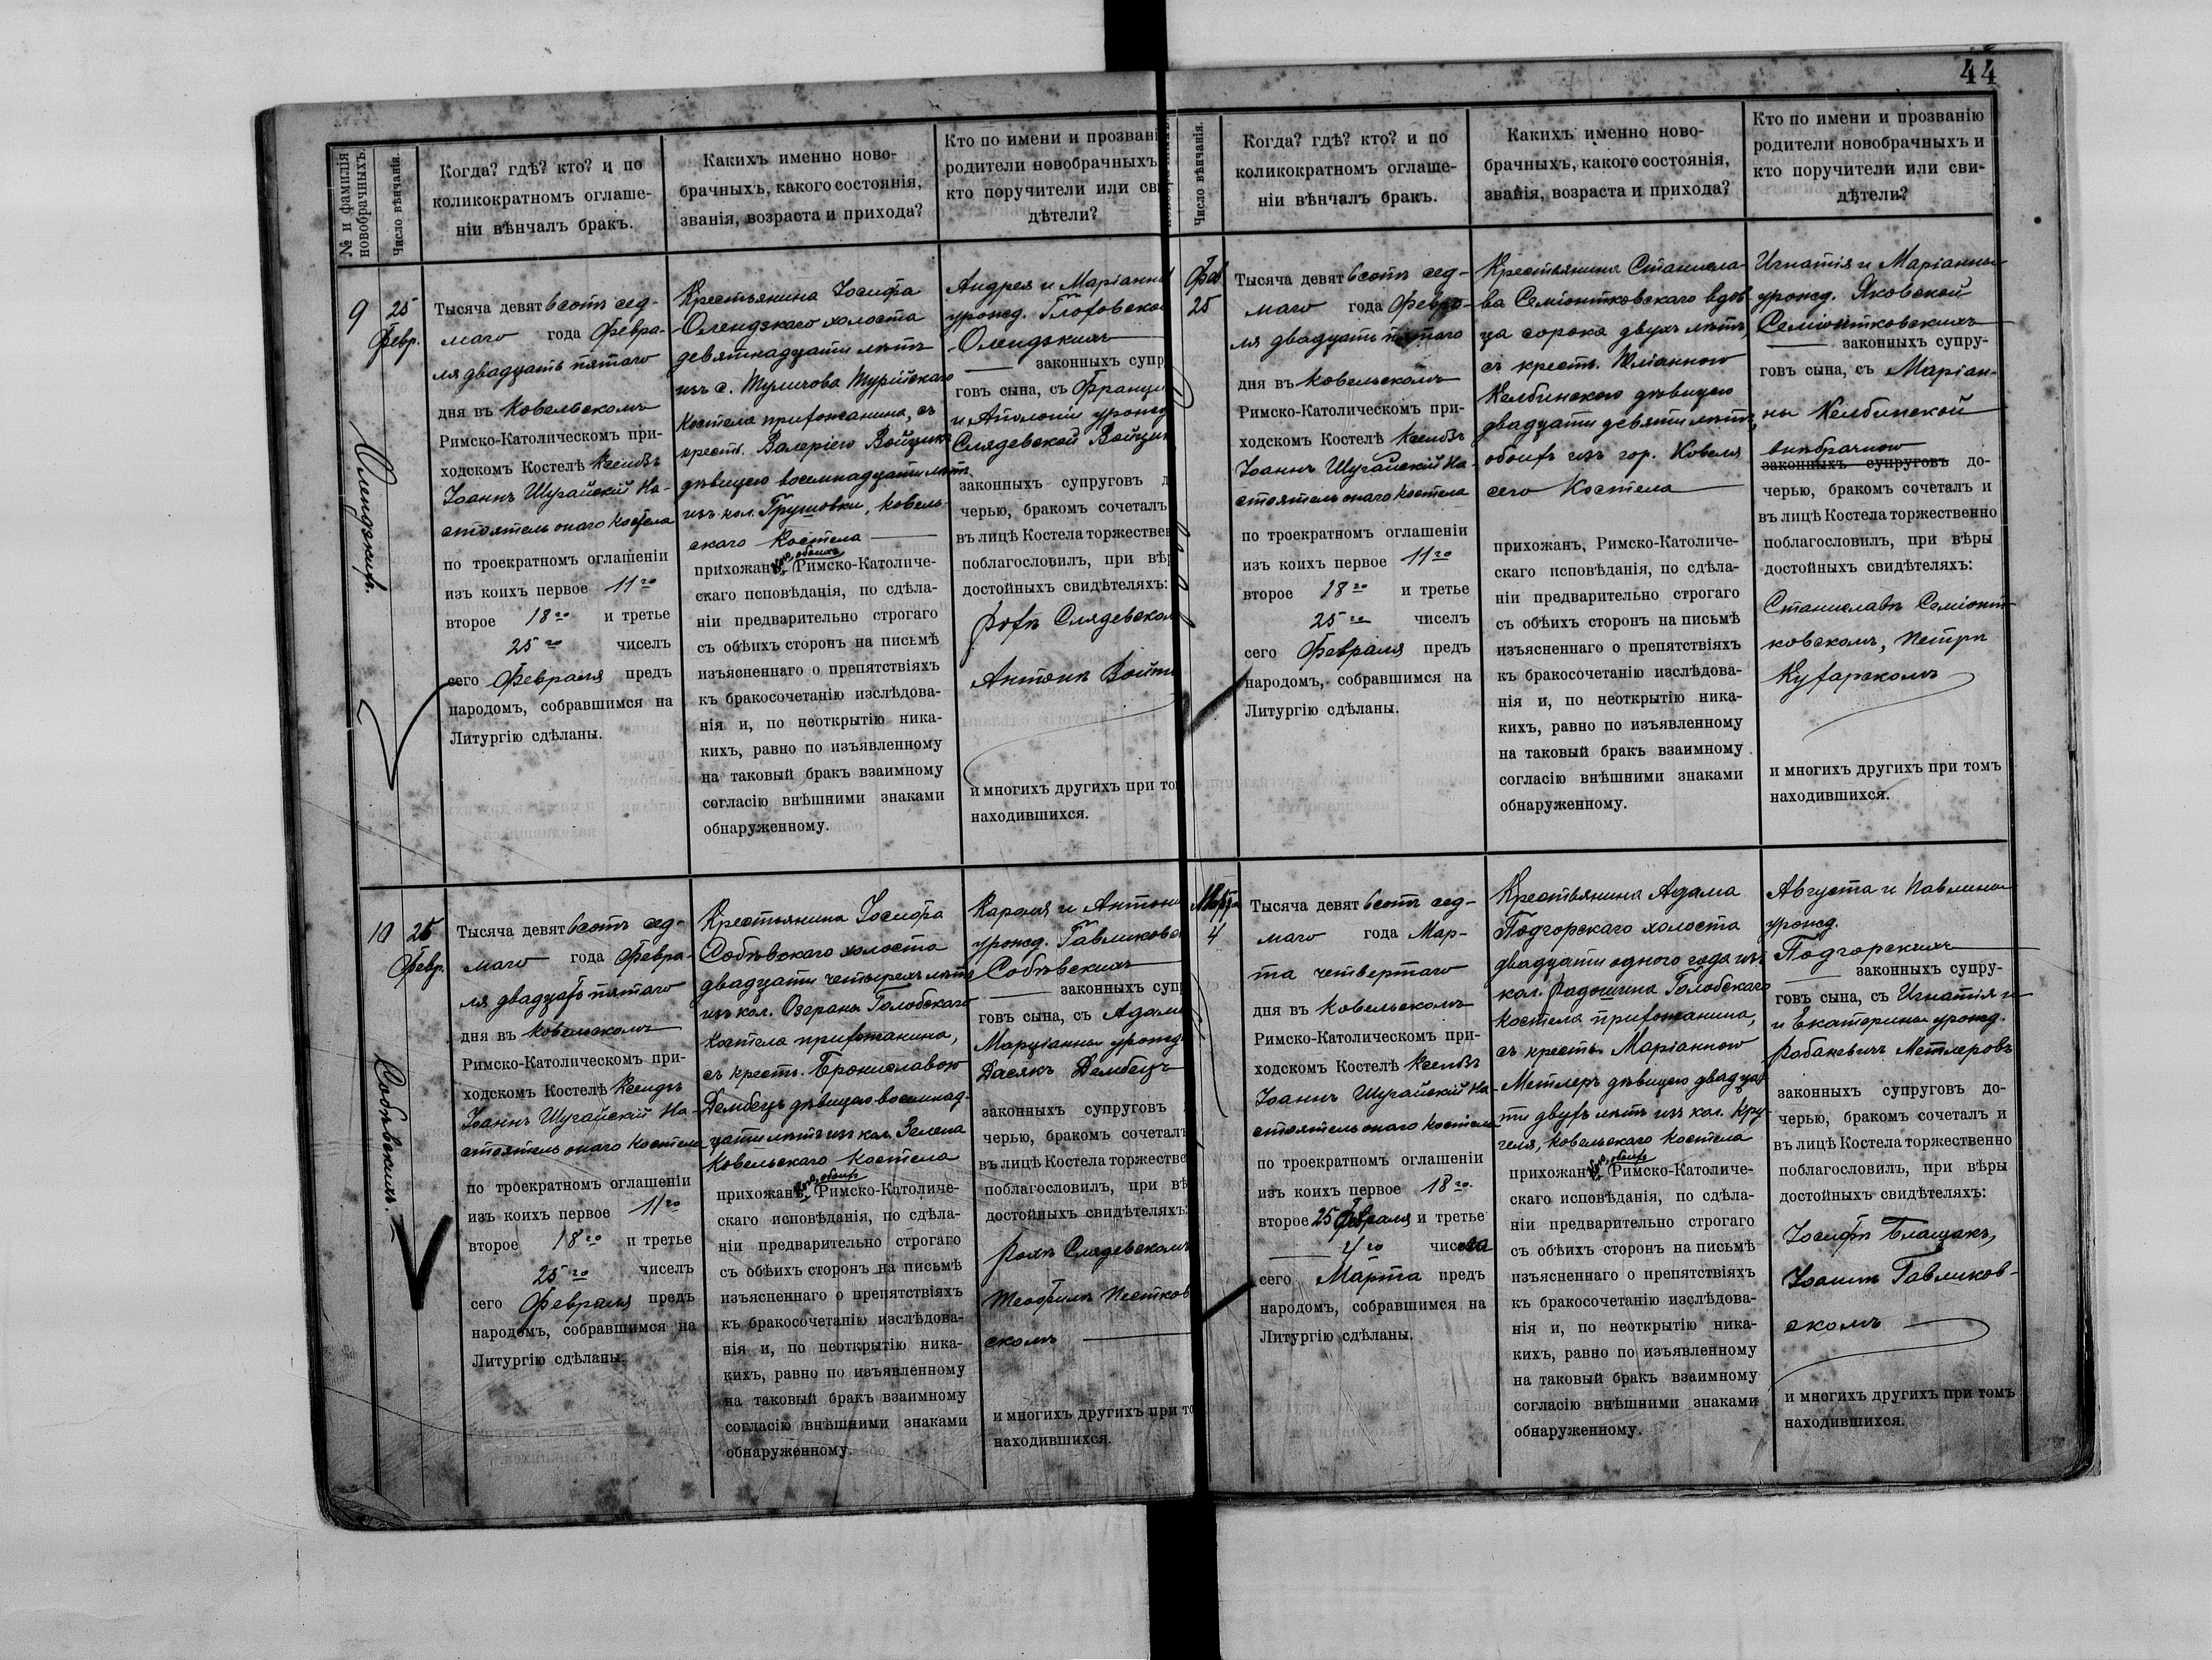 № и фамилія
новобрачныхъ.
Число вѣнчанія.
Когда? гдѣ? кто? и по
коликократномъ оглаше-
ніи вѣнчалъ бракъ.
Какихъ именно ново-
брачныхъ, какого состоянія,
званія, возраста и прихода?
Кто по имени и прозвані
родители новобрачныхъ
кто поручители или св
дѣтели?
9
Олендзкихъ.
25
Февр.
Тысяча девятьсотъ сед-
маго года Февра-
ля двадцать пятаго
дня въ Ковельскомъ
Римско-Католическомъ при-
ходскомъ Костелѣ Ксендзъ
Іоаннъ Шугайскій На-
стоятель онаго Костела
по троекратномъ оглашеніи
изъ коихъ первое 11го
второе 18го и третье
25го чиселъ
сего Февраля предъ
народомъ, собравшимся на
Литургію сдѣланы.
Крестьянина Іосифа
Олендзкаго холоста
девятнадцати лѣтъ
изъ с. Туличова Турійскаго
Костела прихожанина, съ
крест. Валеріею Войцик
дѣвицею восемнадцати лѣтъ
изъ кол. Грушовки, Ковель-
скаго Костела
прихожан обоихъ Римско-Католиче-
скаго исповѣданія, по сдѣла-
ніи предварительно строгаго
съ обѣихъ сторонъ на письмѣ
изъясненнаго о препятствіяхъ
къ бракосочетанію изслѣдова-
нія и, по неоткрытію ника-
кихъ, равно по изъявленному
на таковый бракъ взаимному
согласію внѣшними знаками
обнаруженному.
Андрея и Маріанны
урожд. Глоховско
Олендзкихъ
законныхъ супр
говъ сына, съ Франци
и Аполоніи урожд
Слядевской Войцик
законныхъ супруговъ д
черью, бракомъ сочеталъ
въ лицѣ Костела торжествен
поблагословилъ, при вѣр
достойныхъ свидѣтеляхъ:
Рохъ Слядевском
Антонъ Войт
и многихъ другихъ при то
находившихся.
10
Собѣвскихъ.
25
Февр.
Тысяча девятьсотъ сед-
маго года Февра-
ля двадцать пятаго
дня въ Ковельскомъ
Римско-Католическомъ при-
ходскомъ Костелѣ Ксендзъ
Іоаннъ Шугайскій На-
стоятель онаго Костела
по троекратномъ оглашеніи
изъ коихъ первое 11го
второе 18го и третье
25го чиселъ
сего Февраля предъ
народомъ, собравшимся на
Литургію сдѣланы.
Крестьянина Іосифа
Собѣвскаго холоста
двадцати четырехъ лѣтъ
изъ кол. Озераны Голобскаго
Костела прихожанина,
съ крест. Брониславою
Дембецъ дѣвицею восемнад-
цати лѣтъ изъ кол. Зелена
Ковельскаго Костела
прихожанъ обоихъ Римско-Католиче-
скаго исповѣданія, по сдѣла-
ніи предварительно строгаго
съ обѣихъ сторонъ на письмѣ
изъясненнаго о препятствіяхъ
къ бракосочетанію изслѣдова-
нія и, по неоткрытію ника-
кихъ, равно по изъявленному
на таковый бракъ взаимному
согласію внѣшними знаками
обнаруженному.
Кароля и Антони
урожд. Гавликовс
Собѣвскихъ
законныхъ суп
говъ сына, съ Адам
Марціанны урожд.
Дасякъ Дембецъ
законныхъ супруговъ
черью, бракомъ сочеталъ
въ лицѣ Костела торжестве
поблагословилъ, при вѣ
достойныхъ свидѣтеляхъ:
Рохъ Слядевскомъ
Теофилъ Пестков
скомъ
и многихъ другихъ при то
находившихся.
44
Число вѣнчанія.
Когда? гдѣ? кто? и по
коликократномъ оглаше-
ніи вѣнчалъ бракъ.
Какихъ именно ново-
брачныхъ, какого состоянія,
званія, возраста и прихода?
Кто по имени и прозванію
родители новобрачныхъ и
кто поручители или сви-
дѣтели?
Фев
25
Тысяча девятьсотъ сед-
маго года Февра-
ля двадцать пятаго
дня въ Ковельскомъ
Римско-Католическомъ при-
ходскомъ Костелѣ Ксендзъ
Іоаннъ Шугайскій На-
стоятель онаго Костела
по троекратномъ оглашеніи
изъ коихъ первое 11го
второе 18го и третье
25го чиселъ
сего Февраля предъ
народомъ, собравшимся на
Литургію сдѣланы.
Крестьянина Станисла-
ва Семіонтковскаго вдов
ца сорока двухъ лѣтъ,
съ крест. Юліанною
Келбинскою дѣвицею
двадцати девяти лѣтъ,
обоихъ изъ гор. Ковеля
сего Костела
прихожан, Римско-Католиче-
скаго исповѣданія, по сдѣла-
ніи предварительно строгаго
съ обѣихъ сторонъ на письмѣ
изъясненнаго о препятствіяхъ
къ бракосочетанію изслѣдова-
нія и, по неоткрытію ника-
кихъ, равно по изъявленному
на таковый бракъ взаимному
согласію внѣшними знаками
обнаруженному.
Игнатія и Маріанны
урожд. Яковской
Семіонтковскихъ
законныхъ супру-
говъ сына, съ Маріан-
ны Келбинской
внѣбрачною
законныхъ супруговъ до-
черью, бракомъ сочеталъ и
въ лицѣ Костела торжественно
поблагословилъ, при вѣры
достойныхъ свидѣтеляхъ:
Станиславъ Семіонт-
ковскомъ, Петръ
Кухарскомъ
и многихъ другихъ при томъ
находившихся.
Марта
4
Тысяча девятьсотъ сед-
маго года Мар-
та четвертаго
дня въ Ковельскомъ
Римско-Католическомъ при-
ходскомъ Костелѣ Ксендзъ
Іоаннъ Шугайскій На-
стоятель онаго Костела
по троекратномъ оглашеніи
изъ коихъ первое 18го
второе 25 Февраля и третье
4го числа
сего Марта предъ
народомъ, собравшимся на
Литургію сдѣланы.
Крестьянина Адама
Подгорскаго холоста
двадцати одного года изъ
кол. Радошина Голобскаго
Костела прихожанина,
съ крест. Маріанною
Метлеръ дѣвицею двадца
ти двухъ лѣтъ изъ кол. Кру-
геля, Ковельскаго Костела
прихожан обоихъ Римско-Католиче-
скаго исповѣданія, по сдѣла-
ніи предварительно строгаго
съ обѣихъ сторонъ на письмѣ
изъясненнаго о препятствіяхъ
къ бракосочетанію изслѣдова-
нія и, по неоткрытію ника-
кихъ, равно по изъявленному
на таковый бракъ взаимному
согласію внѣшними знаками
обнаруженному.
Августа и Павлины
урожд.
Подгорскихъ
законныхъ супру-
говъ сына, съ Игнатія и
и Екатерины урожд.
Рабаневичъ Метлеровъ
законныхъ супруговъ до-
черью, бракомъ сочеталъ и
въ лицѣ Костела торжественно
поблагословилъ, при вѣры
достойныхъ свидѣтеляхъ:
Іосифъ Блащакъ,
Іоаннъ Гавликов-
скомъ
и многихъ другихъ при томъ
находившихся.